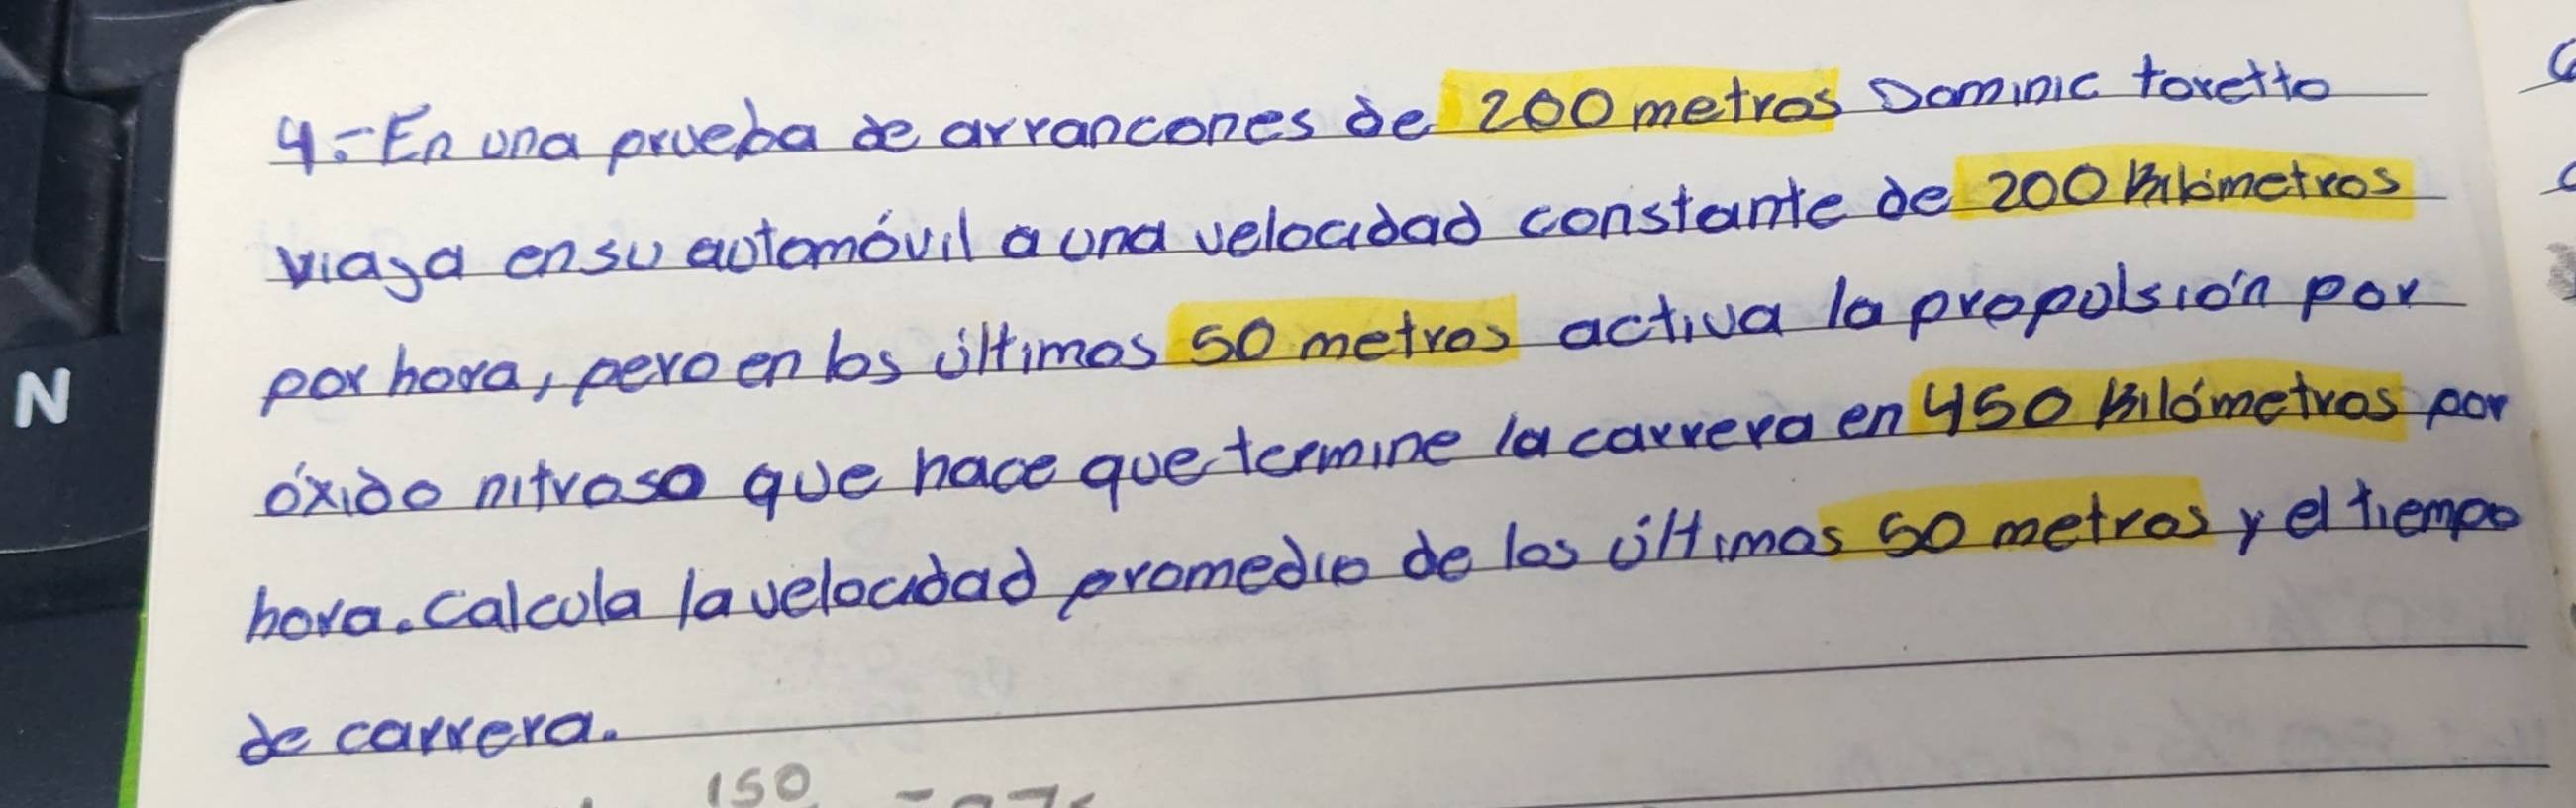 N
4.- En una prueba de arrancones de 200 metros Dominic toretto
viaja en su automóvil a una velocidad constante de 200 Kilómetros
por hora, pero en los últimos 50 metros activa la propulsión por
óxido nitroso que hace que termine la carrera en 450 Kilómetros por
hora. Calcula la velocidad promedio de los últimos 50 metros y el tiempo
de carrera.
150